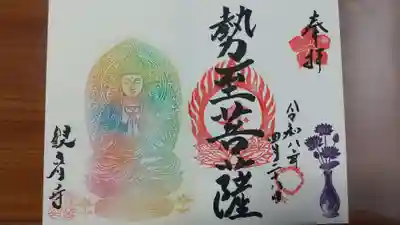 奉拝
令和八年
四月二十日
勢至菩薩
観音寺